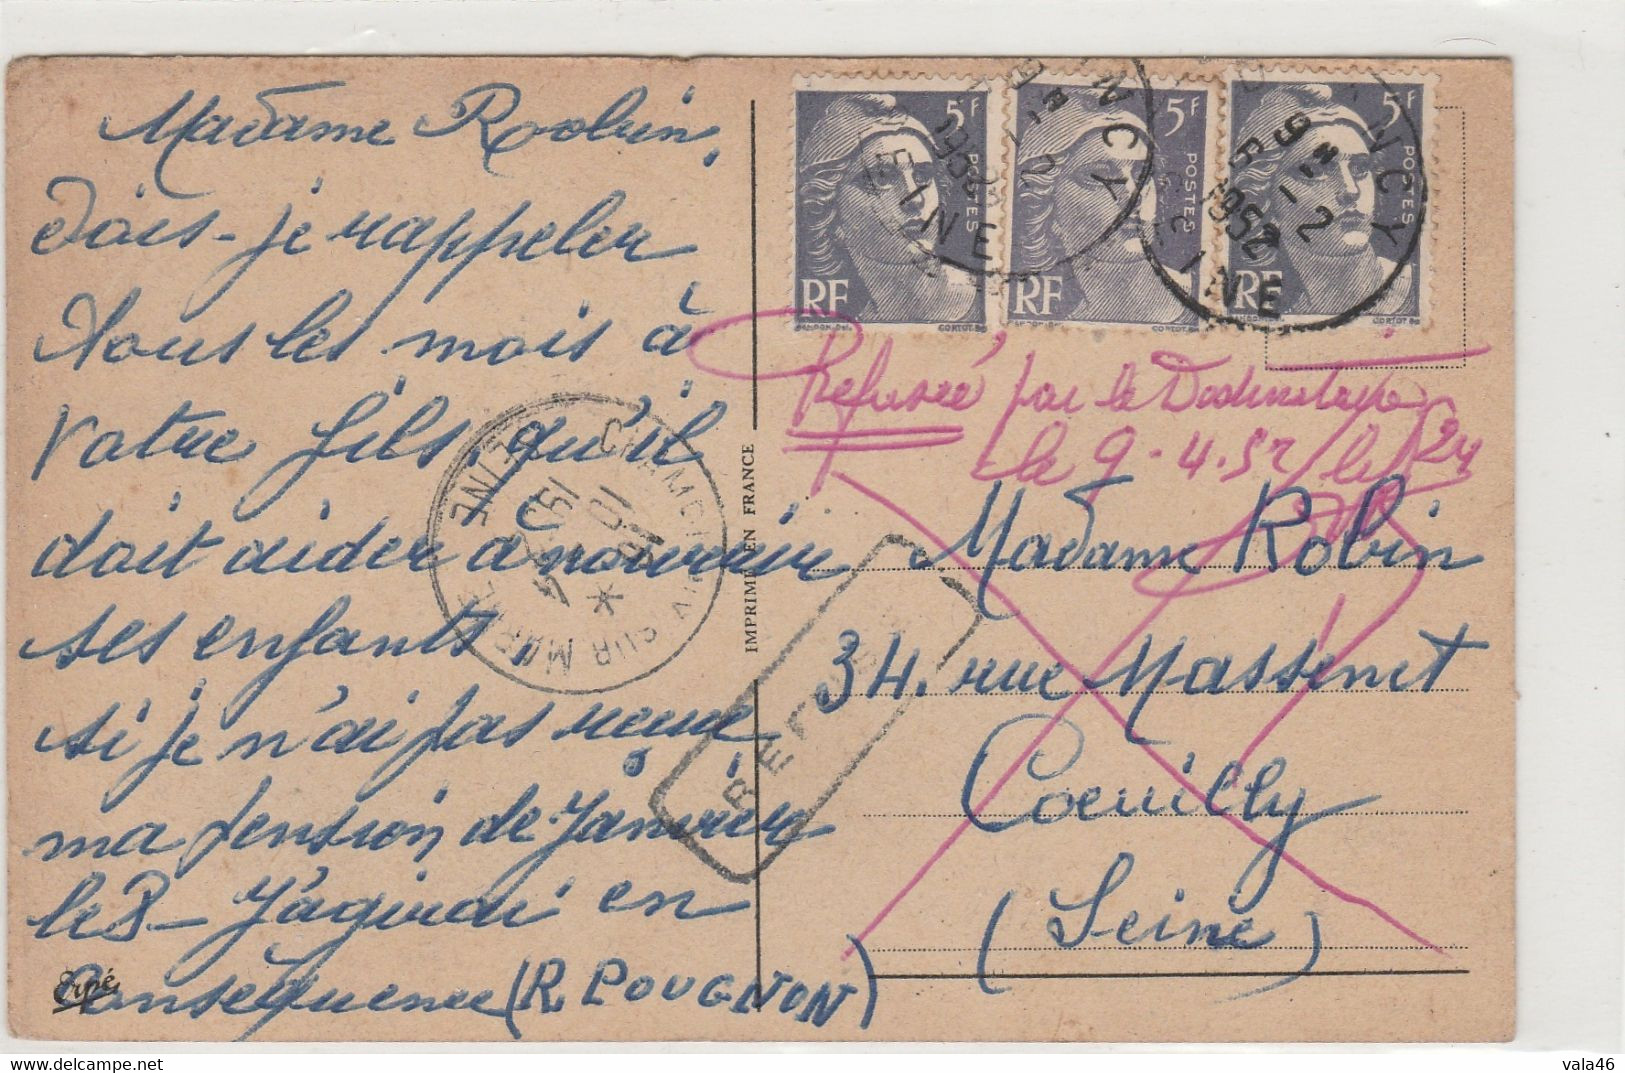 Madame Robin,
Dois-je rappeler
tous les mois à
votre fils, qu'il
doit aider à nourrir
ses enfants,
si je n'ai pas reçue
ma pension de Janvier
le 8 - J'agirai en
Conséquence (R. POUGNON)
Erpé
IMPRIMÉ EN FRANCE
5F
POSTES
RF
CORTOT
5F
POSTES
RF
CORTOT
5F
POSTES
RF
CORTOT
1952
Refusée par le
le 9-4-52
CHAMPIGNY SUR MARNE
SEINE
REFUSÉ
Madame Robin
34, rue Massenet
Coeuilly
(Seine)
vala46